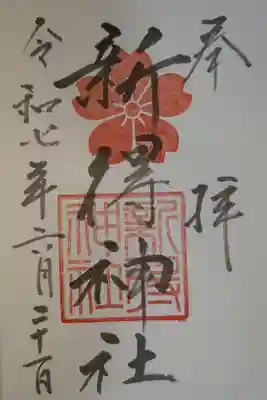 奉拝
新得神社
令和七年六月二十一日
新得神社